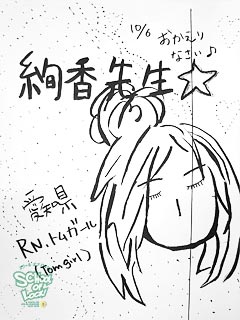 10/6 おかえり
なさい♪
絢香先生☆
愛知県
R.N.トムガール
(Tomgirl)
SCHOOL
OF
LOCK!